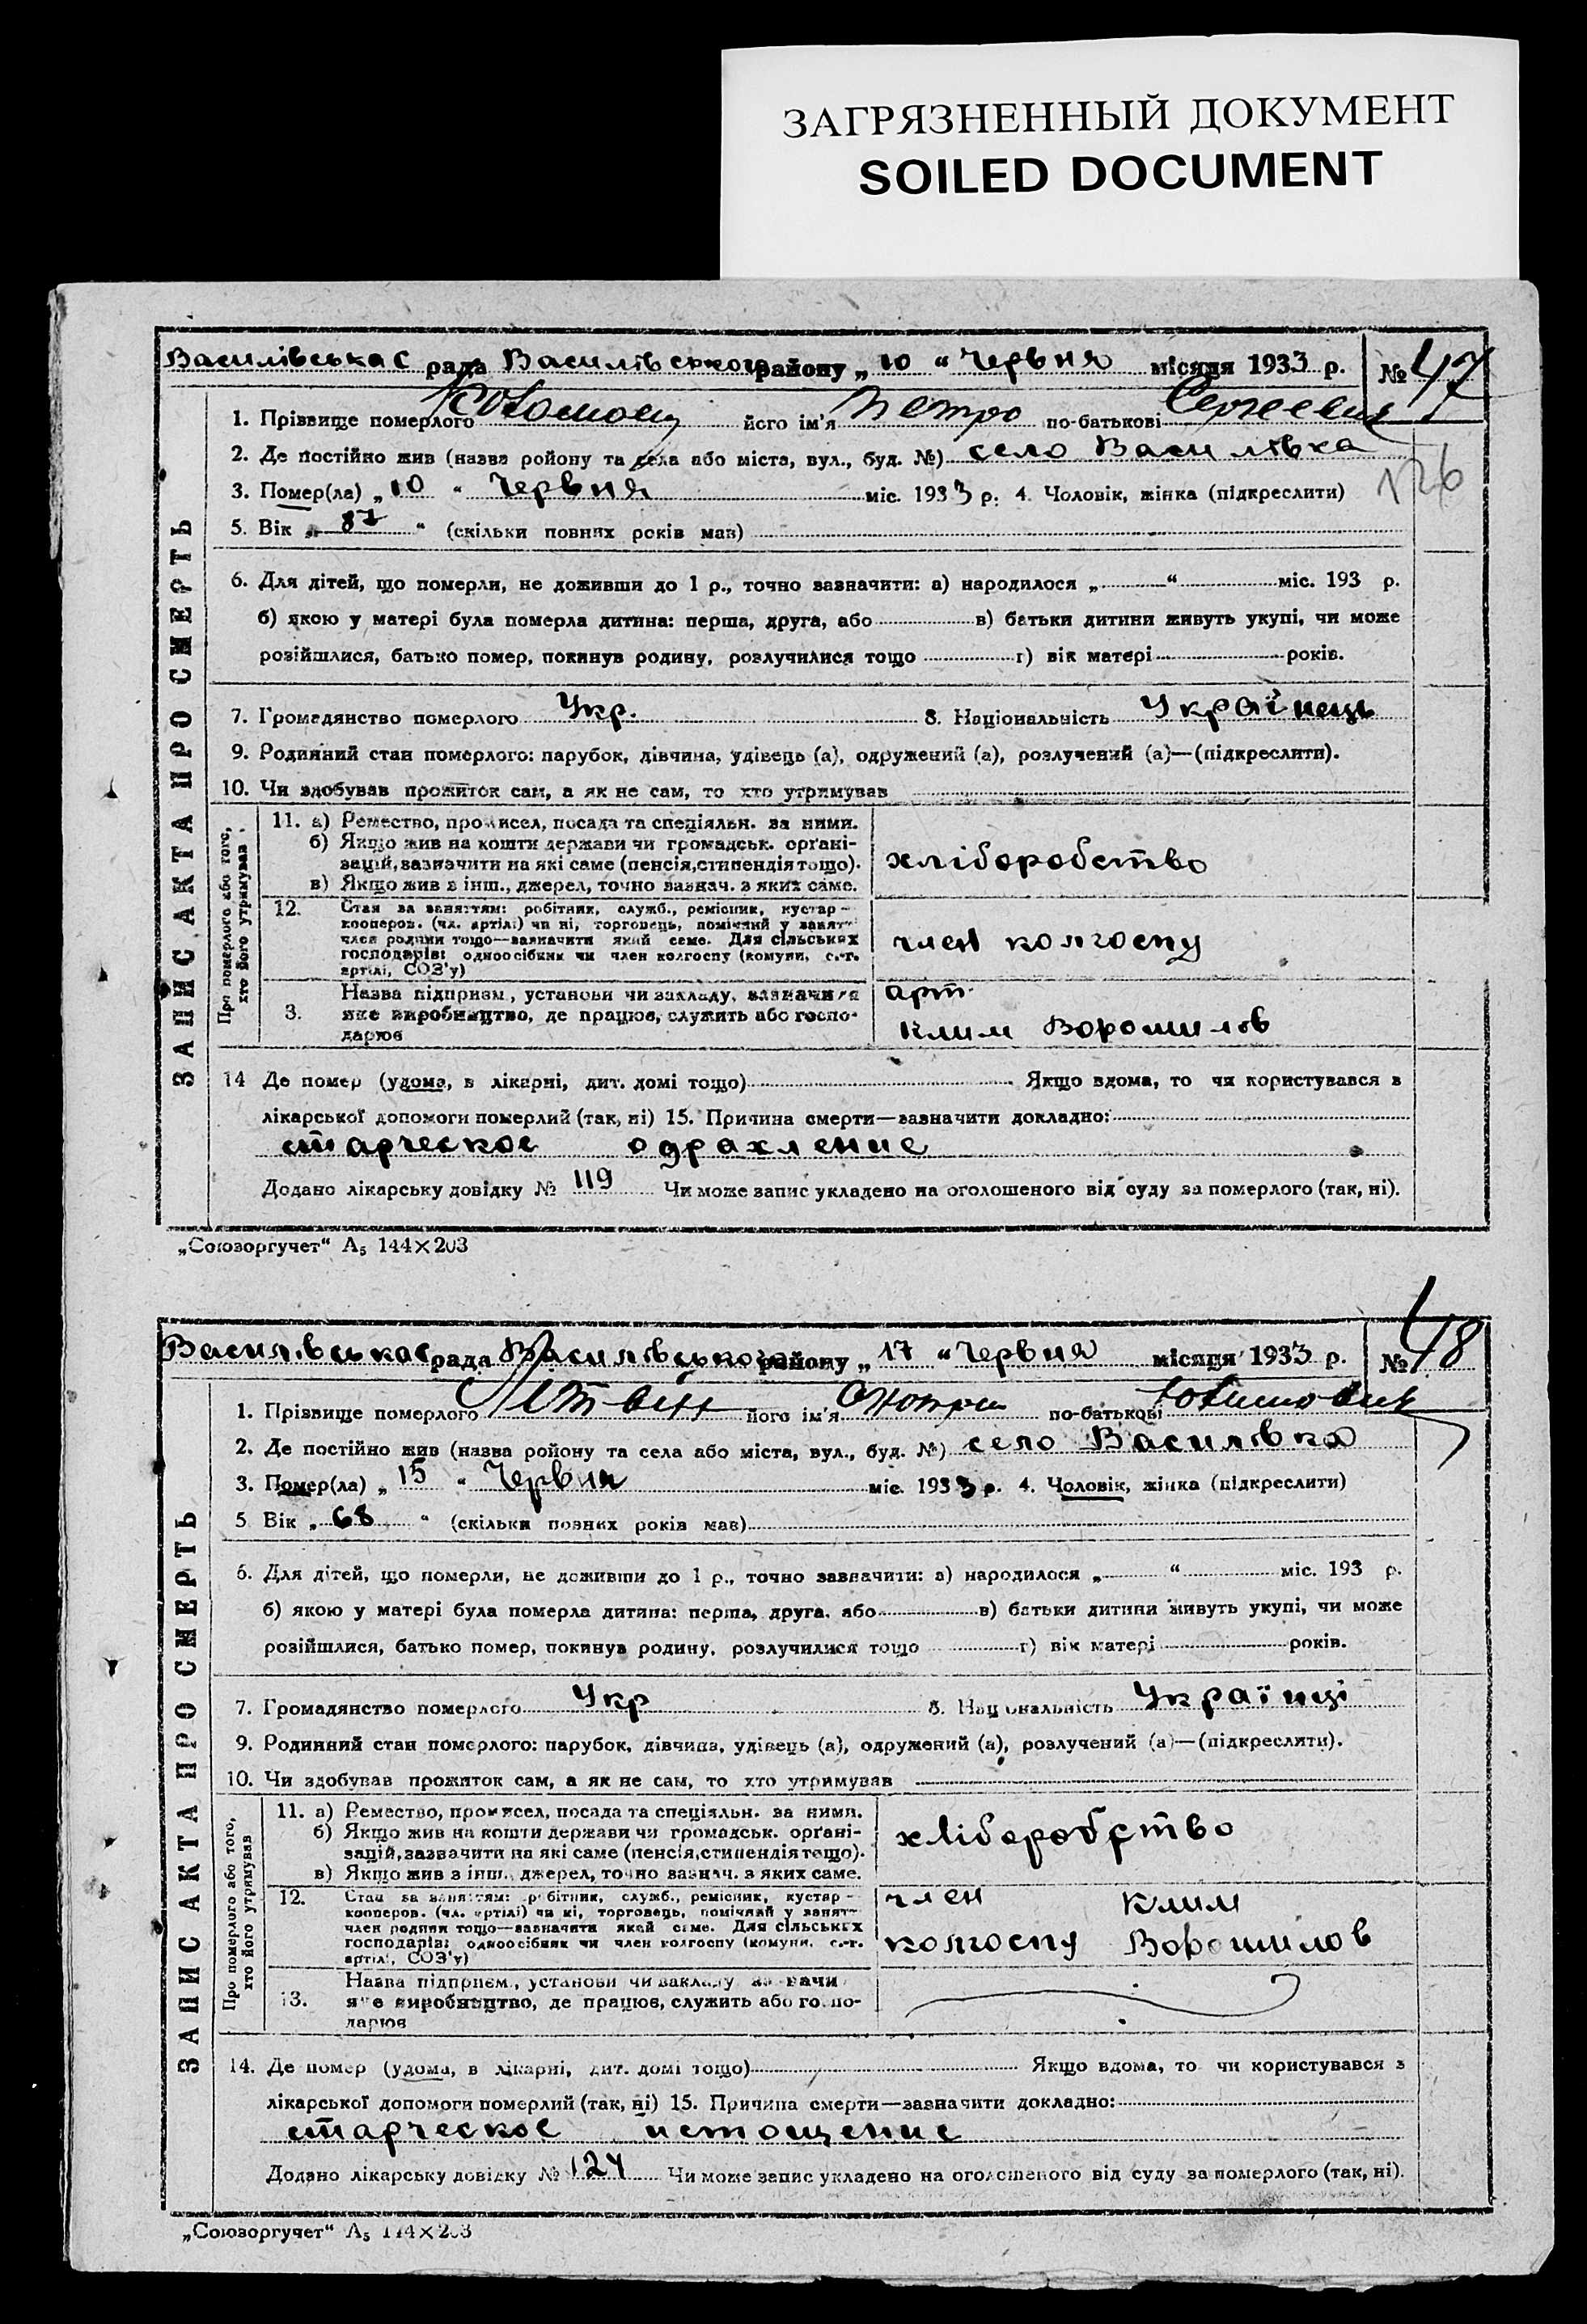 ЗАГРЯЗНЕННЫЙ ДОКУМЕНТ
SOILED DOCUMENT
Василівська с рада Василівського району „10“ Червня місяця 1933 р. № 47
1. Прізвище померлого його ім'я Петро по-батькові Сергеевич
2. Де постійно жив (назва ройону та села або міста, вул., буд. №) село Василівка
126
3. Помер(ла) „10“ Червня міс. 1933 р. 4. Чоловік, жінка (підкреслити)
5. Вік „87“ (скільки повних років мав)
6. Для дітей, що померли, не доживши до 1 р., точно зазначити: а) народилося „ “ міс. 193 р.
б) якою у матері була померла дитина: перша, друга, або в) батьки дитини живуть укупі, чи може
розійшлися, батько помер, покинув родину, розлучилися тощо г) вік матері років.
7. Громадянство померлого Укр. 8. Національність Українець
9. Родинний стан померлого: парубок, дівчина, удівець (а), одружений (а), розлучений (а)—(підкреслити).
10. Чи здобував прожиток сам, а як не сам, то хто утримував
ЗАПИС АКТА ПРО СМЕРТЬ
Про померлого або того, хто його утримував
11. а) Ремество, промисел, посада та спеціяльн. за ними.
б) Якщо жив на кошти держави чи громадськ. орґані-
зацій, зазначити на які саме (пенсія, стипендія тощо).
в) Якщо жив з інш., джерел, точно зазнач. з яких саме.
хліборобство
12. Стан за заняттям: робітник, служб., ремісник, кустар-
кооперов. (чл. артілі) чи ні, торговець, помічний у занят-
член родини тощо—зазначити який саме. Для сільських
господарів: одноосібник чи член колгоспу (комуни, с.-г.
артілі, СОЗ'у)
член колгоспу
3. Назва підприєм., установи чи закладу, зазначити
яке виробництво, де працює, служить або госпо-
дарює
арт.
Клим Ворошилов
14 Де помер (удома, в лікарні, дит. домі тощо) Якщо вдома, то чи користувався з
лікарської допомоги померлий (так, ні) 15. Причина смерти—зазначити докладно:
старческое одрахление
Додано лікарську довідку № 119 Чи може запис укладено на оголошеного від суду за померлого (так, ні).
„Союзоргучет“ А5 144×203
Василівська с рада Василівського району „17“ Червня місяця 1933 р. № 48
1. Прізвище померлого Литвин його ім'я по-батькові
2. Де постійно жив (назва ройону та села або міста, вул., буд. №) село Василівка
3. Помер(ла) „15“ Червня міс. 1933 р. 4. Чоловік, жінка (підкреслити)
5 Вік „68“ (скільки повних років мав)
6. Для дітей, що померли, не доживши до 1 р., точно зазначити: а) народилося „ “ міс. 193 р.
б) якою у матері була померла дитина: перша, друга, або в) батьки дитини живуть укупі, чи може
розійшлися, батько помер, покинув родину, розлучилися тощо г) вік матері років.
7. Громадянство померлого Укр 8. Національність Українці
9. Родинний стан померлого: парубок, дівчина, удівець (а), одружений (а), розлучений (а)—(підкреслити).
10. Чи здобував прожиток сам, а як не сам, то хто утримував
ЗАПИС АКТА ПРО СМЕРТЬ
Про померлого або того, хто його утримував
11. а) Ремество, промисел, посада та спеціяльн. за ними.
б) Якщо жив на кошти держави чи громадськ. орґані-
зацій, зазначити на які саме (пенсія, стипендія тощо).
в) Якщо жив з інш., джерел, точно зазнач. з яких саме.
хліборобство
12. Стан за заняттям: робітник, служб., ремісник, кустар-
кооперов. (чл. артілі) чи ні, торговець, помічний у занят-
член родини тощо—зазначити який саме. Для сільських
господарів: одноосібник чи член колгоспу (комуни, с.-г.
артілі, СОЗ'у)
член Клим
колгоспу Ворошилов
13. Назва підприєм., установи чи закладу, зазначи
яке виробництво, де працює, служить або госпо-
дарює
14. Де помер (удома, в лікарні, дит. домі тощо) Якщо вдома, то чи користувався з
лікарської допомоги померлий (так, ні) 15. Причина смерти—зазначити докладно:
старческое истощение
Додано лікарську довідку № 124 Чи може запис укладено на оголошеного від суду за померлого (так, ні).
„Союзоргучет“ А5 144×203